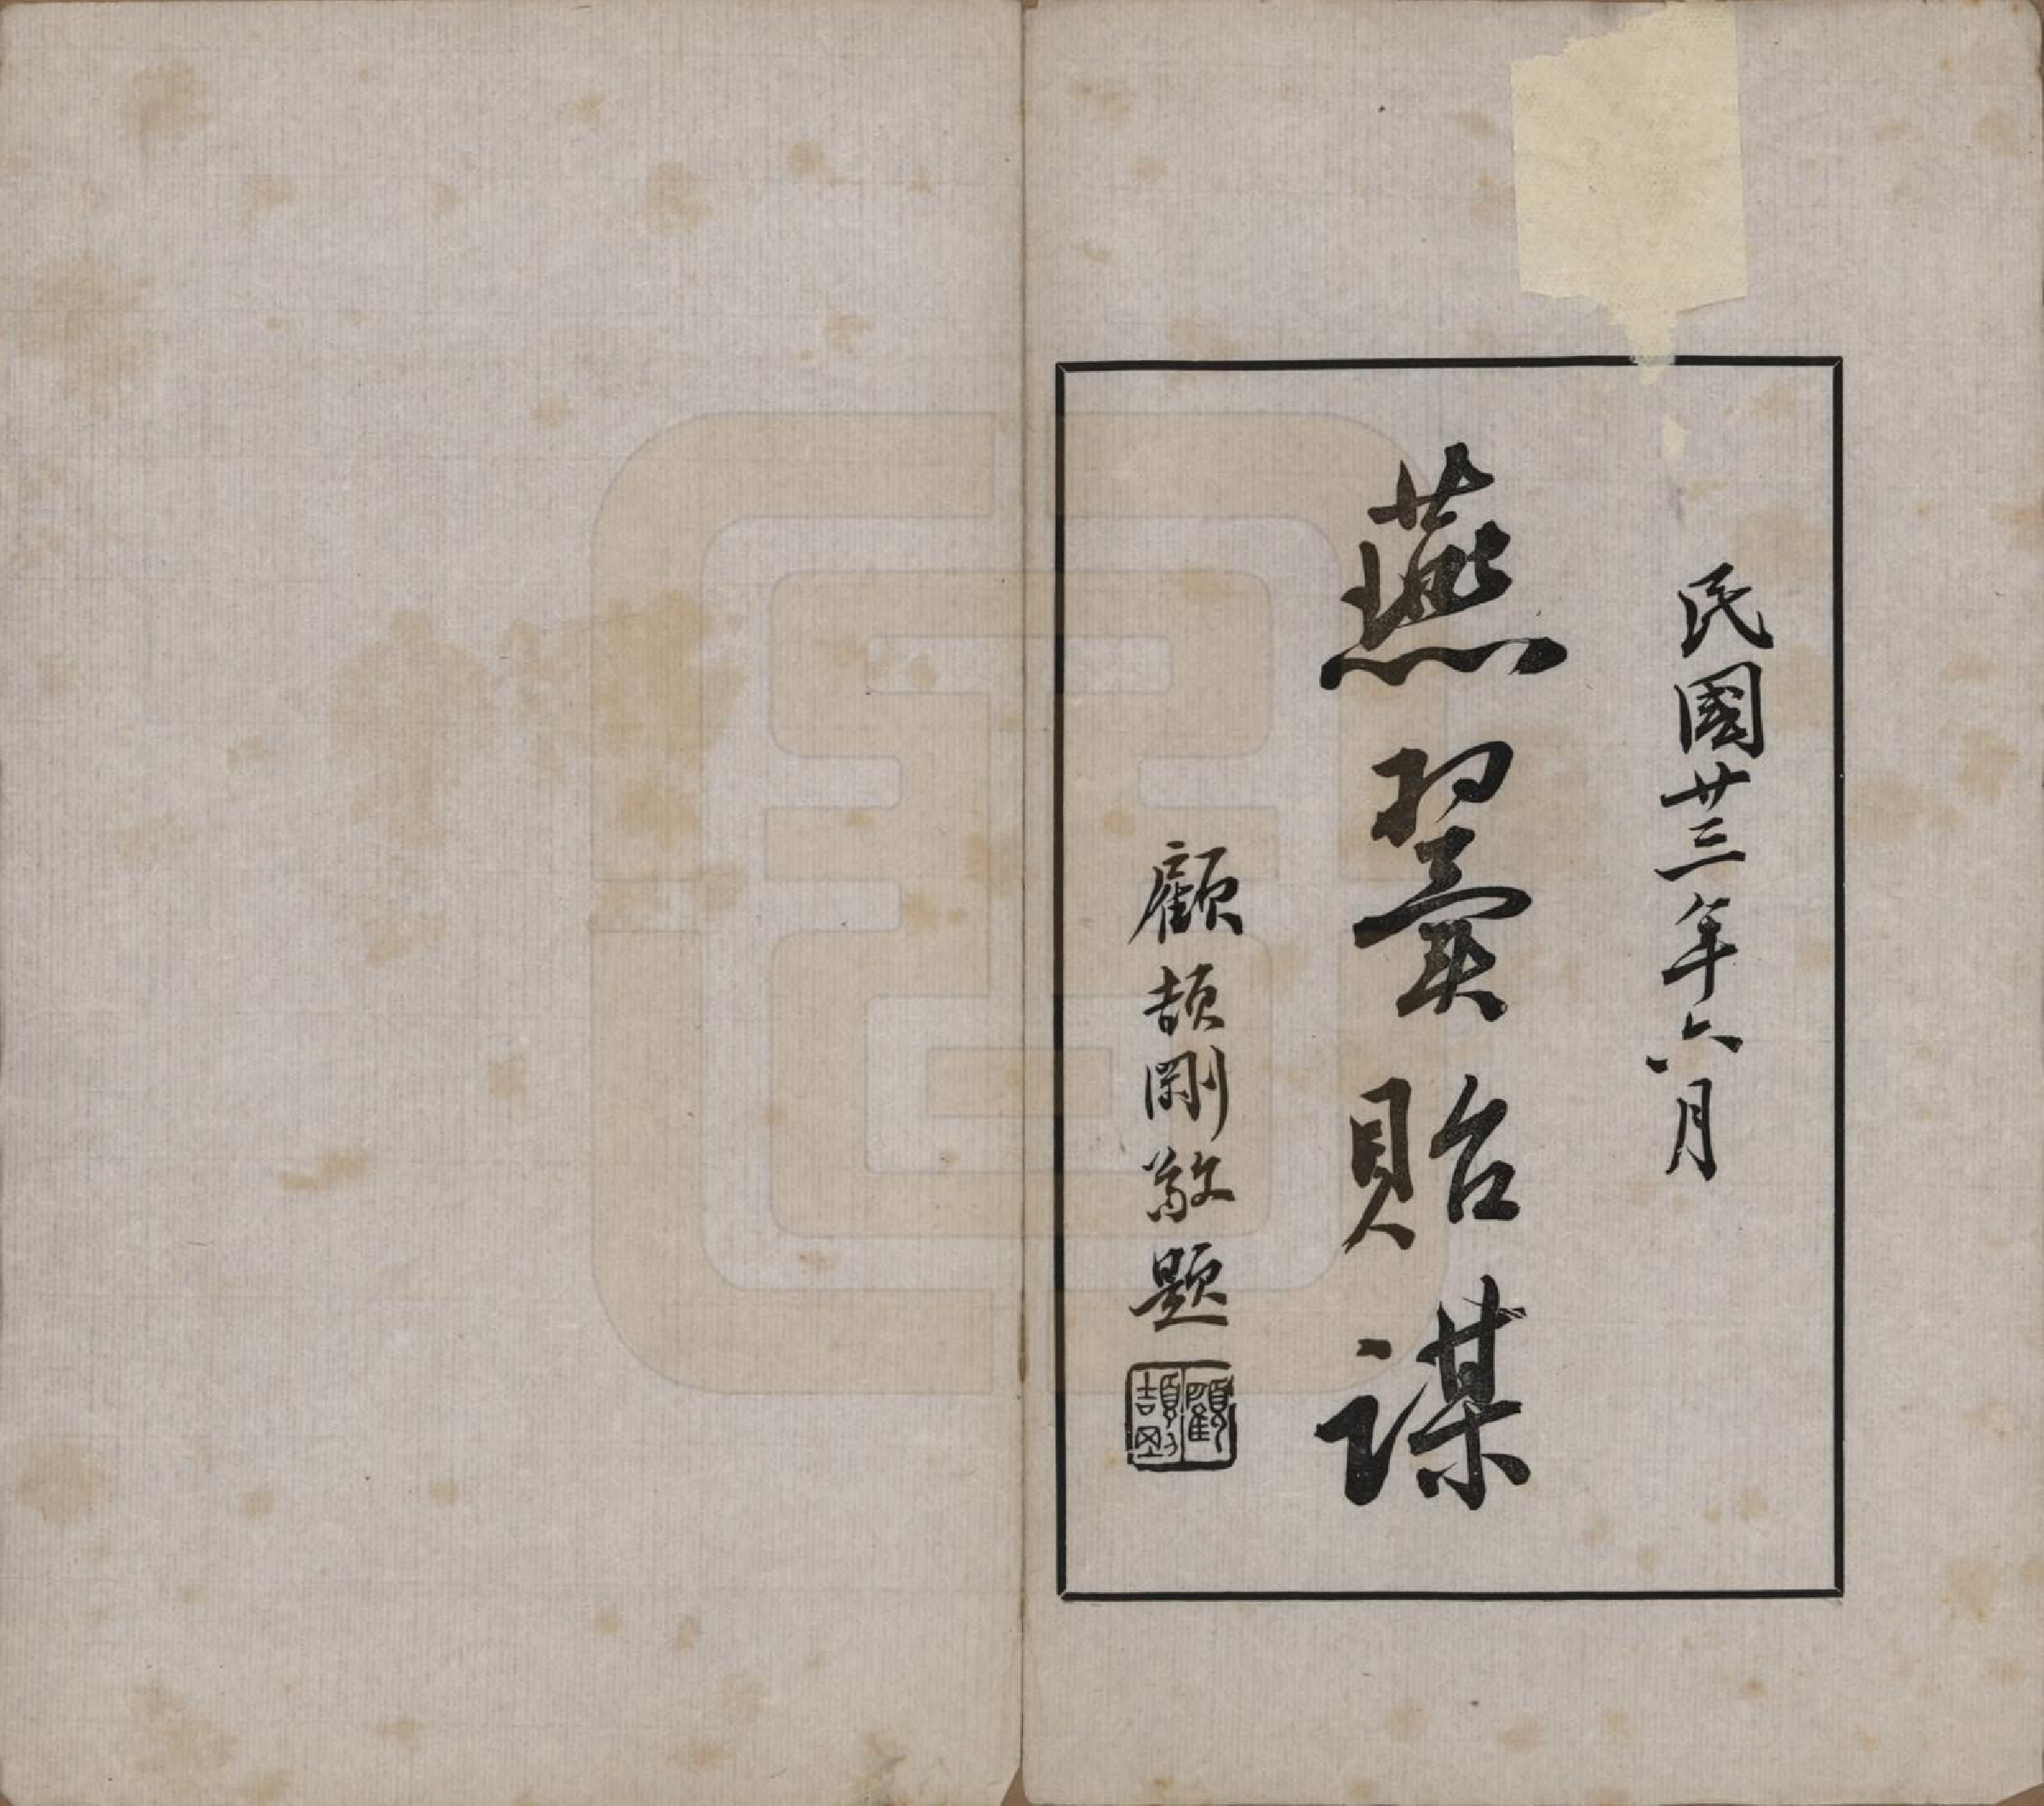 民國廿三年六月
燕翼貽謀
顧頡剛敬題
顧頡剛